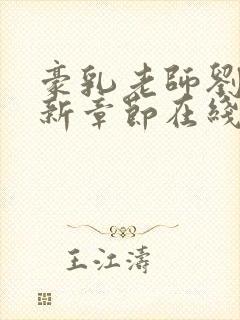 豪乳老師劉
新章節在綫
王江濤